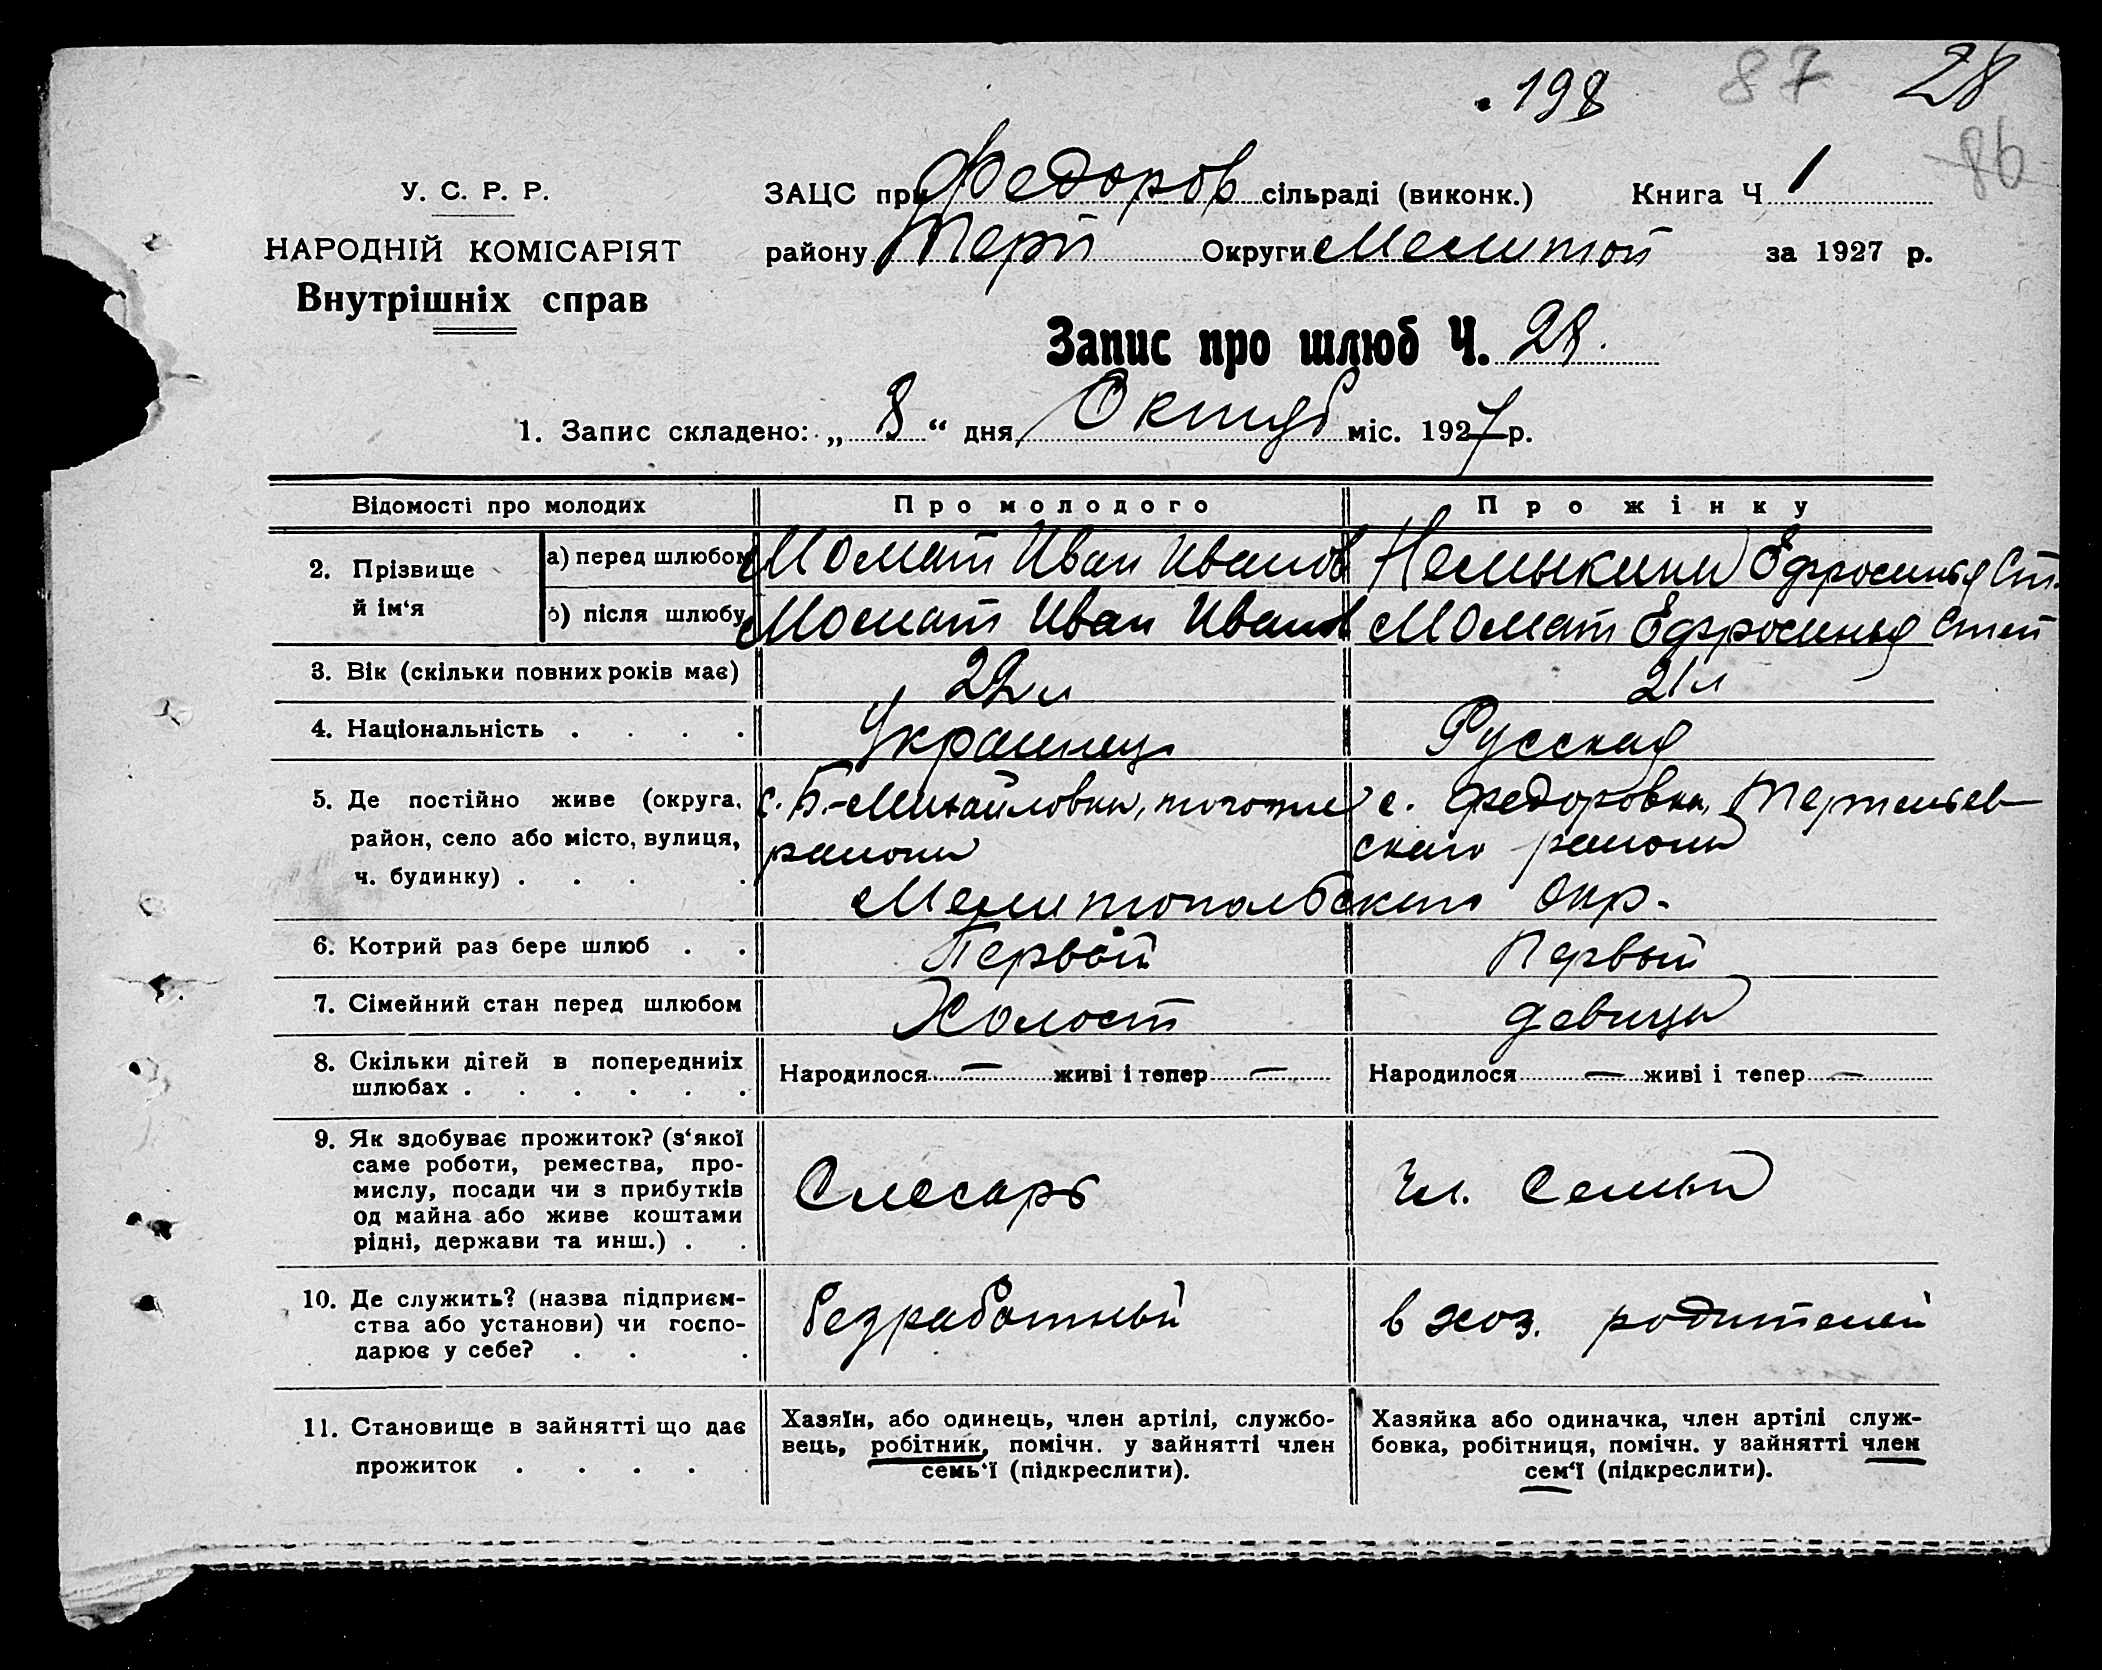 198 87 28
86
У. С. Р. Р.
НАРОДНІЙ КОМІСАРІЯТ
Внутрішніх справ
ЗАЦС при Федоров сільраді (виконк.) Книга Ч 1
району Терп Округи Мелитоп за 1927 р.
Запис про шлюб Ч. 28.
1. Запис складено: „ 8 “ дня Октяб міс. 1927 р.
Відомості про молодих
Про молодого
Про жінку
2. Прізвище й ім‘я
а) перед шлюбом
Момат Иван Иванов
Ефросинья Ст.
б) після шлюбу
Момат Иван Иванов
Момат Ефросинья Степ
3. Вік (скільки повних років має)
21 л
4. Національність . . . .
Украинец
Русская
5. Де постійно живе (округа,
район, село або місто, вулиця,
ч. будинку) . . . .
с. Б.-Михайловка,
района
с. Федоровка, Терпеньев
скаго района
Мелитопольского Окр.
6. Котрий раз бере шлюб . .
Первый
Первый
7. Сімейний стан перед шлюбом
Холост
девица
8. Скільки дітей в попередниіх
шлюбах . . . . . .
Народилося — живі і тепер —
Народилося — живі і тепер —
9. Як здобуває прожиток? (з‘якої
саме роботи, ремества, про-
мислу, посади чи з прибутків
од майна або живе коштами
рідні, держави та инш.) . .
Слесарь
Чл. Семьи
10. Де служить? (назва підприєм-
ства або установи) чи госпо-
дарює у себе? . . .
безработный
в хоз. родителей
11. Становище в зайнятті що дає
прожиток . . . . .
Хазяїн, або одинець, член артілі, службо-
вець, робітник, помічн. у зайнятті член
семь‘ї (підкреслити).
Хазяйка або одиначка, член артілі служ-
бовка, робітниця, помічн. у зайнятті член
сем‘ї (підкреслити).